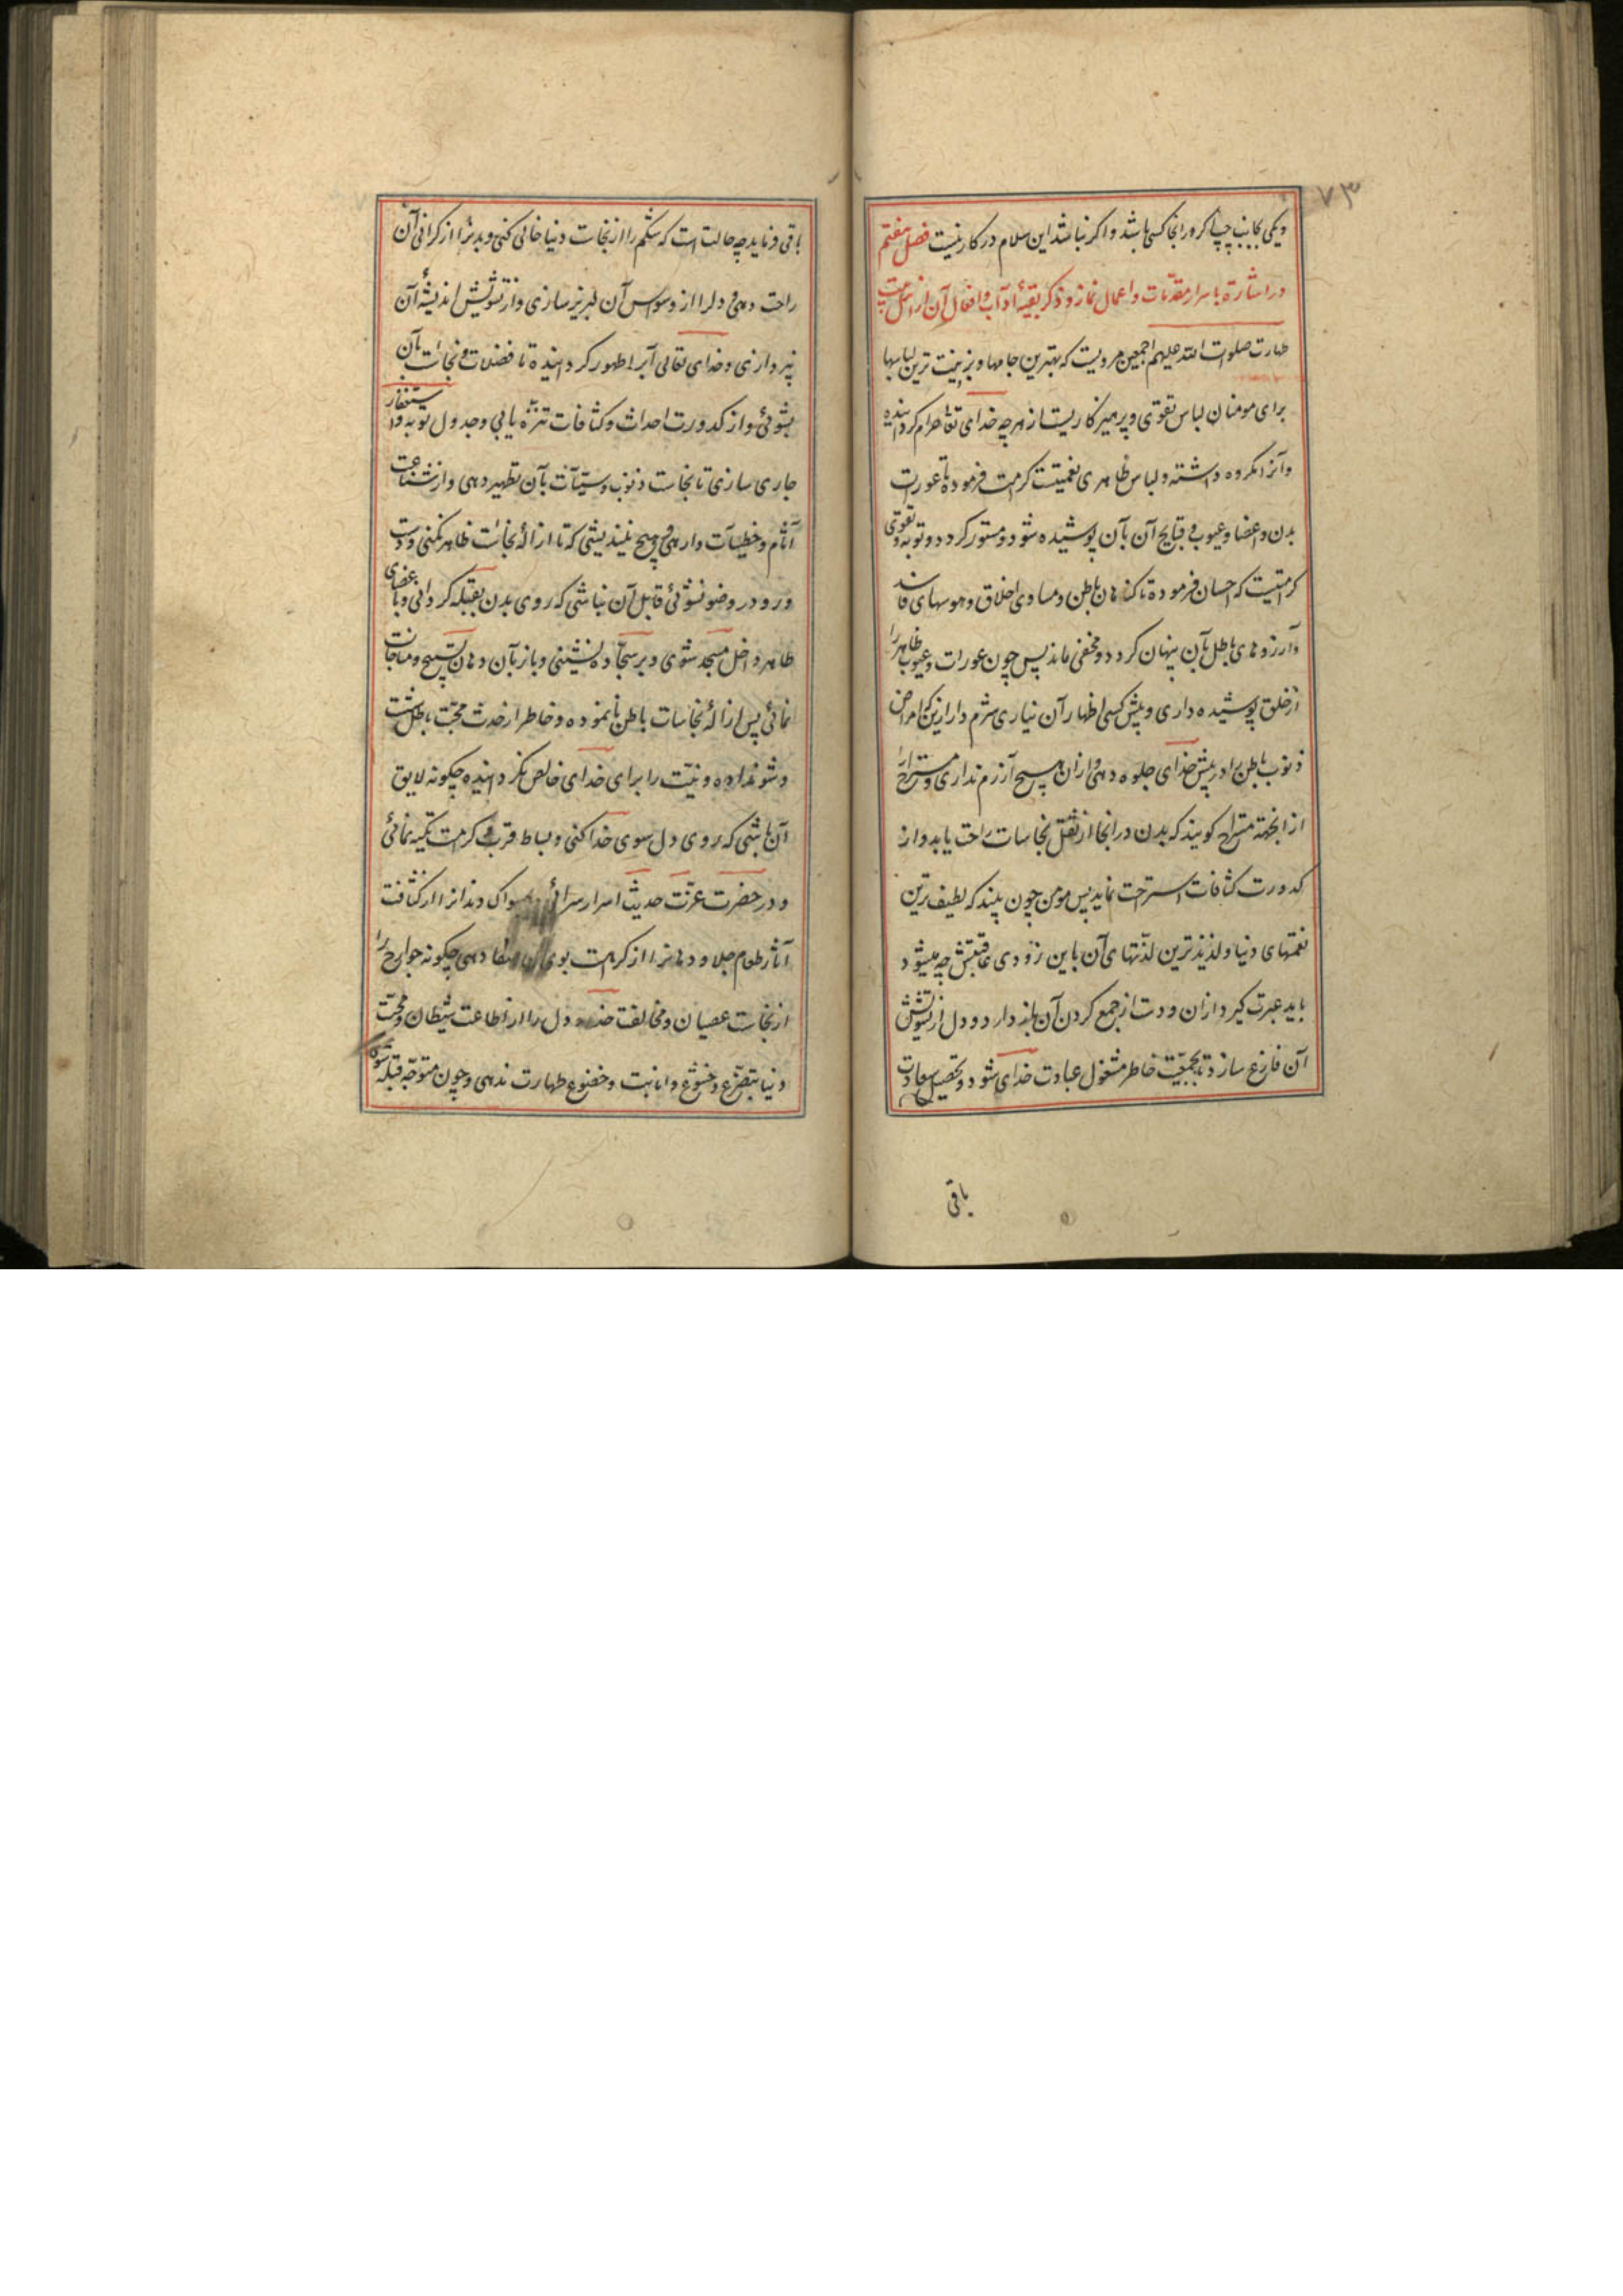 ٧٣
ویکی بجانب چپ اگر در انجا کسی باشد و اگر نباشد این سلام در کار نیست فصل هفتم
در اشارة باسرار مقدّمات و اعمال نماز و ذکر بقیهٔ آداب و افعال آن از اهل بیت
طهارت صلوات الله علیهم اجمعین مرویست که بهترین جامها و بزینت ترین لباسها
برای مومنان لباس تقوی و پرهیزکاریست از هرچه خدای تعا حرام کردانیده
و آنرا مکروه داشته و لباس ظاهری نعمتیست کرامت فرموده تا عورات
بدن و اعضا و عیوب و قبایح آن بآن پوشیده شود و مستور کردد و توبه و تقوی
کرامتیست که احسان فرموده تا کناهان باطن و مساوی اخلاق و هوسهای فاسد
و آرزوهای باطل بآن پنهان کردد و مخفی ماند پس چون عورات و عیوب ظاهر را
از خلق پوشیده داری و پیش کسی اظهار آن نیاری شرم دار ازین که امراض
ذنوب باطن را در پیش خدای جلوه دهی و ازان هیچ آزرم نداری و مستراح را
از انجهة مستراح کویند که بدن در انجا از ثقل نجاسات راحت یابد و از
کدورت کثافات استراحت نماید پس مومن چون بیند که لطیف ترین
نعمتهای دنیا و لذیذترین لذّتهای آن باین زودی عاقبتش چه میشود
باید عبرت کیرد ازان و دست از جمع کردن آن باز دارد و دل از تشویش
آن فارغ سازد تا بجمعیّت خاطر مشغول عبادت خدای شود و تحصیل سعادت
باقی
باقی و نماید چه حالتست که شکم را از نجاسات دنیا خالی کنی و بدنرا از کرانی آن
راحت دهی و دلرا از وسواس آن لبریز سازی و از تشویش اندیشهٔ آن
نپردازی و خدای تعالی آبرا طهور کردانیده تا فضلات و نجاسات بآن
بشوئی و از کدورت احداث و کثافات تنزّه یابی و جدول توبه و استغفار
جاری سازی تا نجاست ذنوب و سیّئات بآن تطهیر دهی و از شناعت
آثام و خطیئات وارهی و هیچ نیندیشی که تا ازالهٔ نجاسات ظاهر نکنی و دست
و رو در وضو نشوئی قابل آن نباشی که روی بدن بقبله کردانی و با اعضای
ظاهر داخل مسجد شوی و بر سجّاده نشینی و باز بآن دهان تسبیح و مناجات
نمائی پس ازالهٔ نجاسات باطن نانموده و خاطر از خدث محبّت باطل شست
و شو نداده و نیّت را برای خدای خالص نکردانیده چکونه لایق
آن باشی که روی دل سوی خدا کنی و بساط قرب و کرامت تکیه نمائی
و در حضرت عزّت حدیث اسرار سرائی مسواک دندانرا از کثافت
آثار طعام جلا و دهانرا از کراهت بوی دهی چکونه جوارح را
از نجاست عصیان و مخالفت خدا و دل را از اطاعت شیطان و محبّت
دنیا بتضرّع و خشوع و انابت و خضوع طهارت ندهی و چون متوجّه قبله شوی